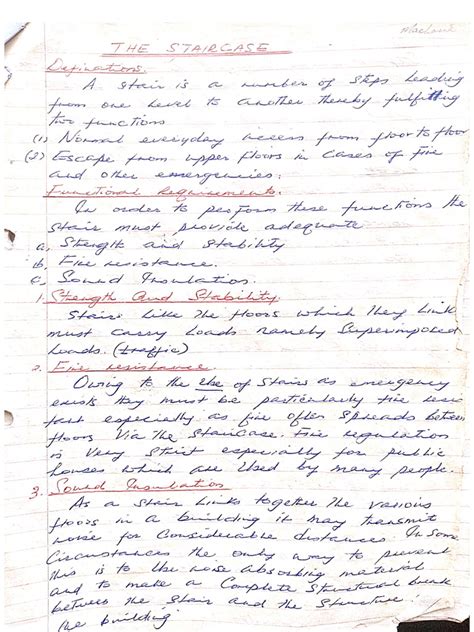 THE STAIRCASE
Definations.
A stair is a number of steps leading
from one level to another thereby fulfitting
two functions
(1) Normal everyday access from floor to floor
(2) Escape from upper floors in cases of fire
and other emergencies.
Functional Requirements.
In order to perform these functions the
stair must provide adequate
a. Strength and Stability
b. Fire resistance.
c. Sound Insulation.
1. Strength and Stability
Stairs like the floors which they link
must carry loads namely Superimposed
loads. (traffic)
2. Fire resistance
Owing to the use of stairs as emergency
exists they must be particularly fire resis
tant especially as fire often spreads between
floors via the staircase. Fire regulation
is very strict especially for public
houses which are used by many people.
3. Sound Insulation
As a stair links together the various
floors in a building it may transmit
noise for considerable distances. In some
circumstances the only way to prevent
this is to use noise absorbing material
and to make a complete structural break
between the stair and the structure.
the building